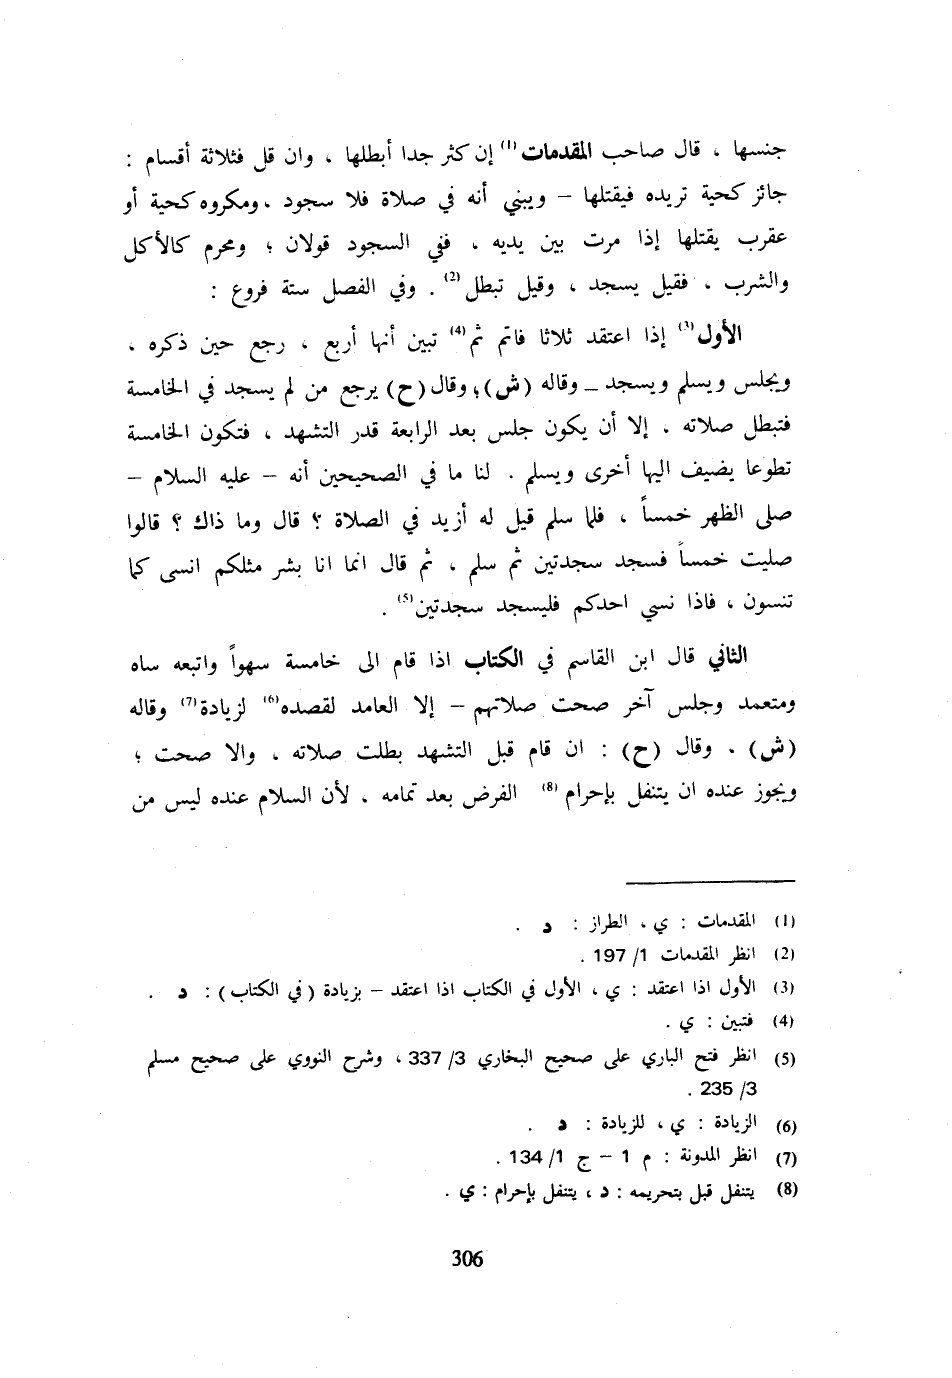 جنسها ، قال صاحب المقدمات (1) إن كثر جدا أبطلها ، وان قل فثلاثة أقسام :
جائز كحية تريده فيقتلها – ويبني أنه في صلاة فلا سجود ، ومكروه كحية أو
عقرب يقتلها إذا مرت بين يديه ، ففي السجود قولان ؛ ومحرم كالأكل
والشرب ، فقيل يسجد ، وقيل تبطل (2) . وفي الفصل ستة فروع :
الأول (3) إذا اعتقد ثلاثا فاتم ثم (4) تبين أنها أربع ، رجع حين ذكره ،
ويجلس ويسلم ويسجد – وقاله (ش) ؛ وقال (ح) يرجع من لم يسجد في الخامسة
فتبطل صلاته . إلا أن يكون جلس بعد الرابعة قدر التشهد ، فتكون الخامسة
تطوعا يضيف اليها أخرى ويسلم . لنا ما في الصحيحين أنه – عليه السلام –
صلى الظهر خمساً ، فلما سلم قيل له أزيد في الصلاة ؟ قال وما ذاك ؟ قالوا
صليت خمساً فسجد سجدتين ثم سلم ، ثم قال انما انا بشر مثلكم انسى كما
تنسون ، فاذا نسي احدكم فليسجد سجدتين (5) .
الثاني قال ابن القاسم في الكتاب اذا قام الى خامسة سهواً واتبعه ساه
ومتعمد وجلس آخر صحت صلاتهم – إلا العامد لقصده (6) لزيادة (7) وقاله
(ش) . وقال (ح) : ان قام قبل التشهد بطلت صلاته ، والا صحت ؛
ويجوز عنده ان يتنفل بإحرام (8) الفرض بعد تمامه . لأن السلام عنده ليس من
(1) المقدمات : ي ، الطراز : د .
(2) انظر المقدمات 1/ 197 .
(3) الأول اذا اعتقد : ي ، الأول في الكتاب اذا اعتقد – بزيادة ( في الكتاب ) : د .
(4) فتبين : ي .
(5) انظر فتح الباري على صحيح البخاري 3/ 337 ، وشرح النووي على صحيح مسلم
3/ 235 .
(6) الزيادة : ي ، للزيادة : د .
(7) انظر المدونة : م 1 – ج 1/ 134 .
(8) يتنفل قبل بتحريمه : د ، يتنفل بإحرام : ي .
306